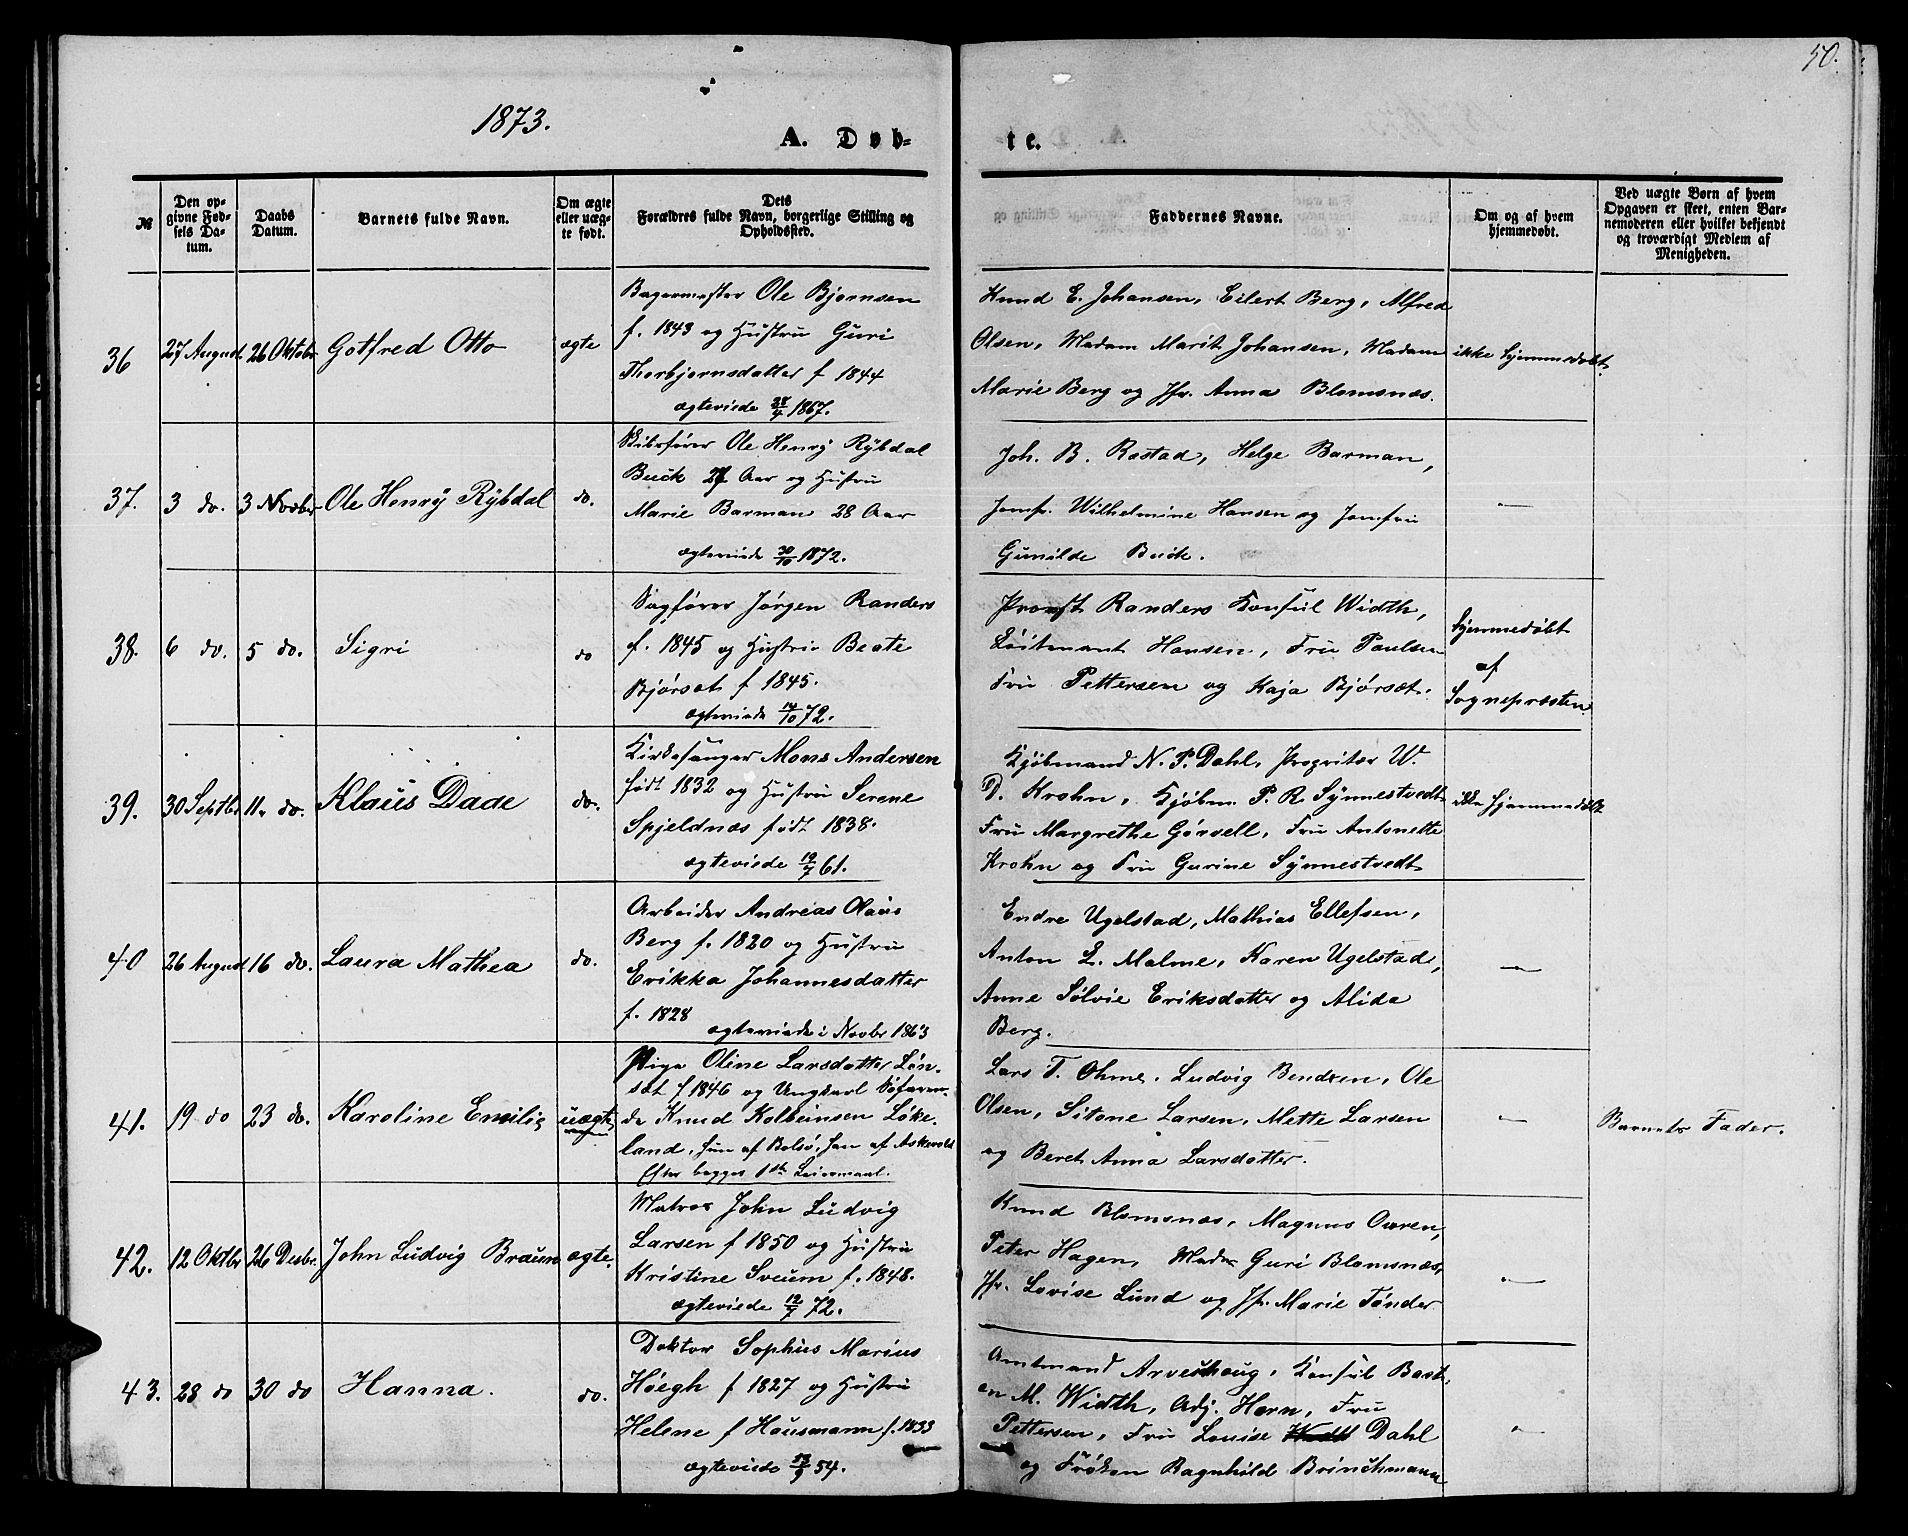 50.
1873.
A. Døb-
te.
№
Den op-
givne Fød-
sels Da-
tum.
Daabs
Datum.
Barnets fulde Navn.
Om ægte
eller uæg-
te født.
Dets
Forældres fulde Navn, borgerlige Stilling og
Opholdssted.
Faddernes Navne.
Om og af hvem
hjemmedøbt.
Ved uægte Børn af hvem
Opgaven er skeet, enten Bar-
nemoderen eller hvilket bekjendt
og troværdigt Medlem af
Menigheden.
36
27 August
26 Oktobr
Gotfred Otto
ægte
Bagermester Ole Bjørnsen
f. 1843 og Hustru Guri
Thorbjørnsdatter f 1844
ægteviede 28/4 1867.
Knud E. Johansen, Eilert Berg, Alfred
Olsen, Madam Marit Johansen, Madam
Marie Berg og Jfr. Anna Blomsnæs.
ikke hjemmedøbt.
37.
3 do.
3 Novbr
Ole Henry Rÿbdal
do.
Skibsfører Ole Henry Rÿbdal
Buck 27 Aar og Hustru
Marie Barman 28 Aar
ægteviede 30/10 1872.
Joh. B. Rostad, Helge Barman,
Jomf. Wilhelmine Hansen og Jomfru
Gunilde Buck.
—
38.
6 do.
5 do.
Sigri
do
Sagfører Jørgen Randers
f. 1845 og Hustru Beate
Bjørset f 1845.
ægteviede 14/10 72.
Provst Randers Konsul Width,
Løitnant Hansen, Fru Paulsen
Fru Pettersen og Kaja Bjørset.
Hjemmedøbt
af
Sognepræsten.
39.
30 Septbr
11. do.
Klaus Dade
do.
Kirkesanger Mons Andersen
født 1832 og Hustru Serene
Spjeldnæs født 1838.
ægteviede 12/7 61.
Kjøbmand N. P. Dahl, Proprietær W.
D. Krohn, Kjøbm. P. R. Synnestvedt
Fru Margrethe Gørvell, Fru Antonette
Krohn og Fru Gurine Synnestvedt
ikke hjemmedøbt
40
26 August
16 do.
Laura Mathea
do.
Arbeider Andreas Olaus
Berg f. 1820 og Hustru
Erikka Johannesdatter
f. 1828
ægteviede i Novbr 1863
Endre Ugelstad, Mathias Ellefsen,
Anton L. Malme, Karen Ugelstad,
Anne Sølvie Eriksdatter og Alida
Berg.
—
41.
19 do
23 do.
Karoline Emilie
uægte
Pige Oline Larsdatter Løn-
set f 1846 og Ungkarl Søfaren-
de Knud Kolbeinsen Løke-
land, hun af Bolsø, han af Askevold
Efter begges 1ste Leiermaal.
Lars T. Ohme, Ludvig Bendsen, Ole
Olsen, Sitone Larsen, Mette Larsen
og Beret Anna Larsdatter.
—
Barnets Fader.
42.
12 Oktbr
26 Desbr.
John Ludvig Braun
ægte.
Matros John Ludvig
Larsen f 1850 og Hustru
Kristine Sveum f. 1848.
ægteviede 12/7 72.
Knud Blomsnæs, Magnus Owren,
Peter Hagen, Madm Guri Blomsnæs,
Jfr. Lovise Lund og Jfr. Marie Tønder
—
43.
28 do
30 do
Hanna.
do.
Doktor Sophus Marius
Høegh f 1827 og Hustru
Helene f Hausmann f. 1833
ægteviede 13/9 54.
Amtmand Arveshoug, Konsul Bast-
en M. Width, Adj. Horn, Fru
Pettersen, Fru Louise Dahl
og Frøken Ragnhild Brinchmann
—